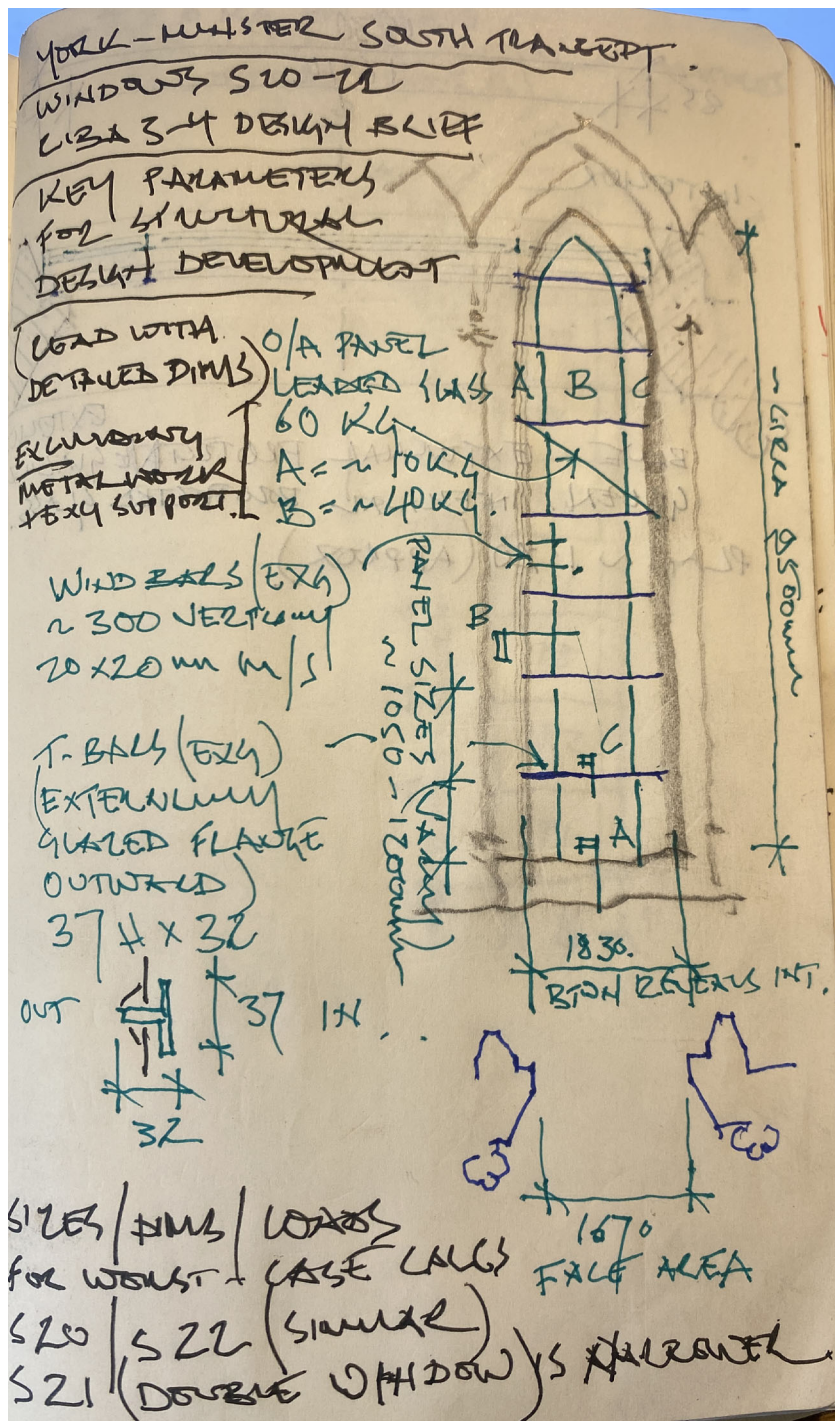 YORK-MINSTER SOUTH TRANSEPT.
WINDOWS S20-22
RIBA 3-4 DESIGN BRIEF
KEY PARAMETERS
FOR STRUCTURAL
DESIGN DEVELOPMENT
(LEAD WITH
DETAILED DIMS)
O/A PANEL
LEADED GLASS
60 KG.
A = ~10KG
B = ~40KG.
EXCLUDING
METALWORK
+ EXG SUPPORT.
A B C
WIND BARS (EXG)
~ 300 VERTICALLY
20x20mm M/S
PANEL SIZES (VARY)
~ 1050 - 1200mm
B
C
A
~ CIRCA 9500mm
T-BARS (EXG)
(EXTERNALLY
GLAZED FLANGE
OUTWARD)
37 H x 32
OUT
37
IN
32
1830.
BTWN REVEALS INT.
1670
FACE AREA
SIZES/DIMS/LOADS
FOR WORST-CASE CALCS
S20/S22 (SIMILAR)
S21 (DOUBLE WINDOW) IS NARROWER.